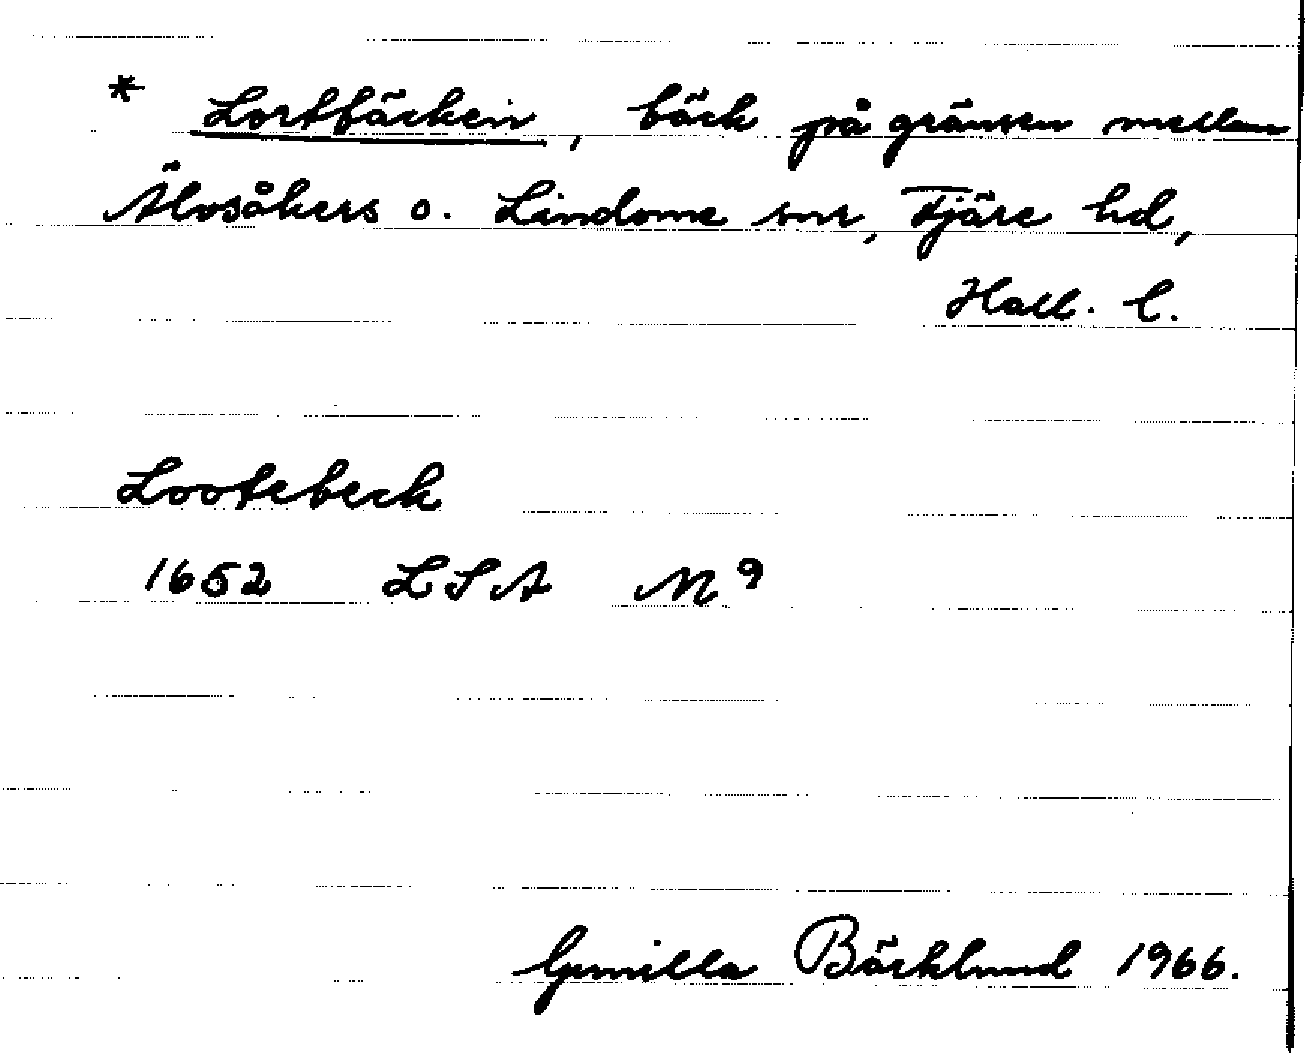 * Lortbäcken, bäck på gränsen mellan
Älvsåkers o. Lindome snr, Fjäre hd,
Hall. l.
Lootebeck
1652 LSA M 9
Gunilla Bäcklund 1966.